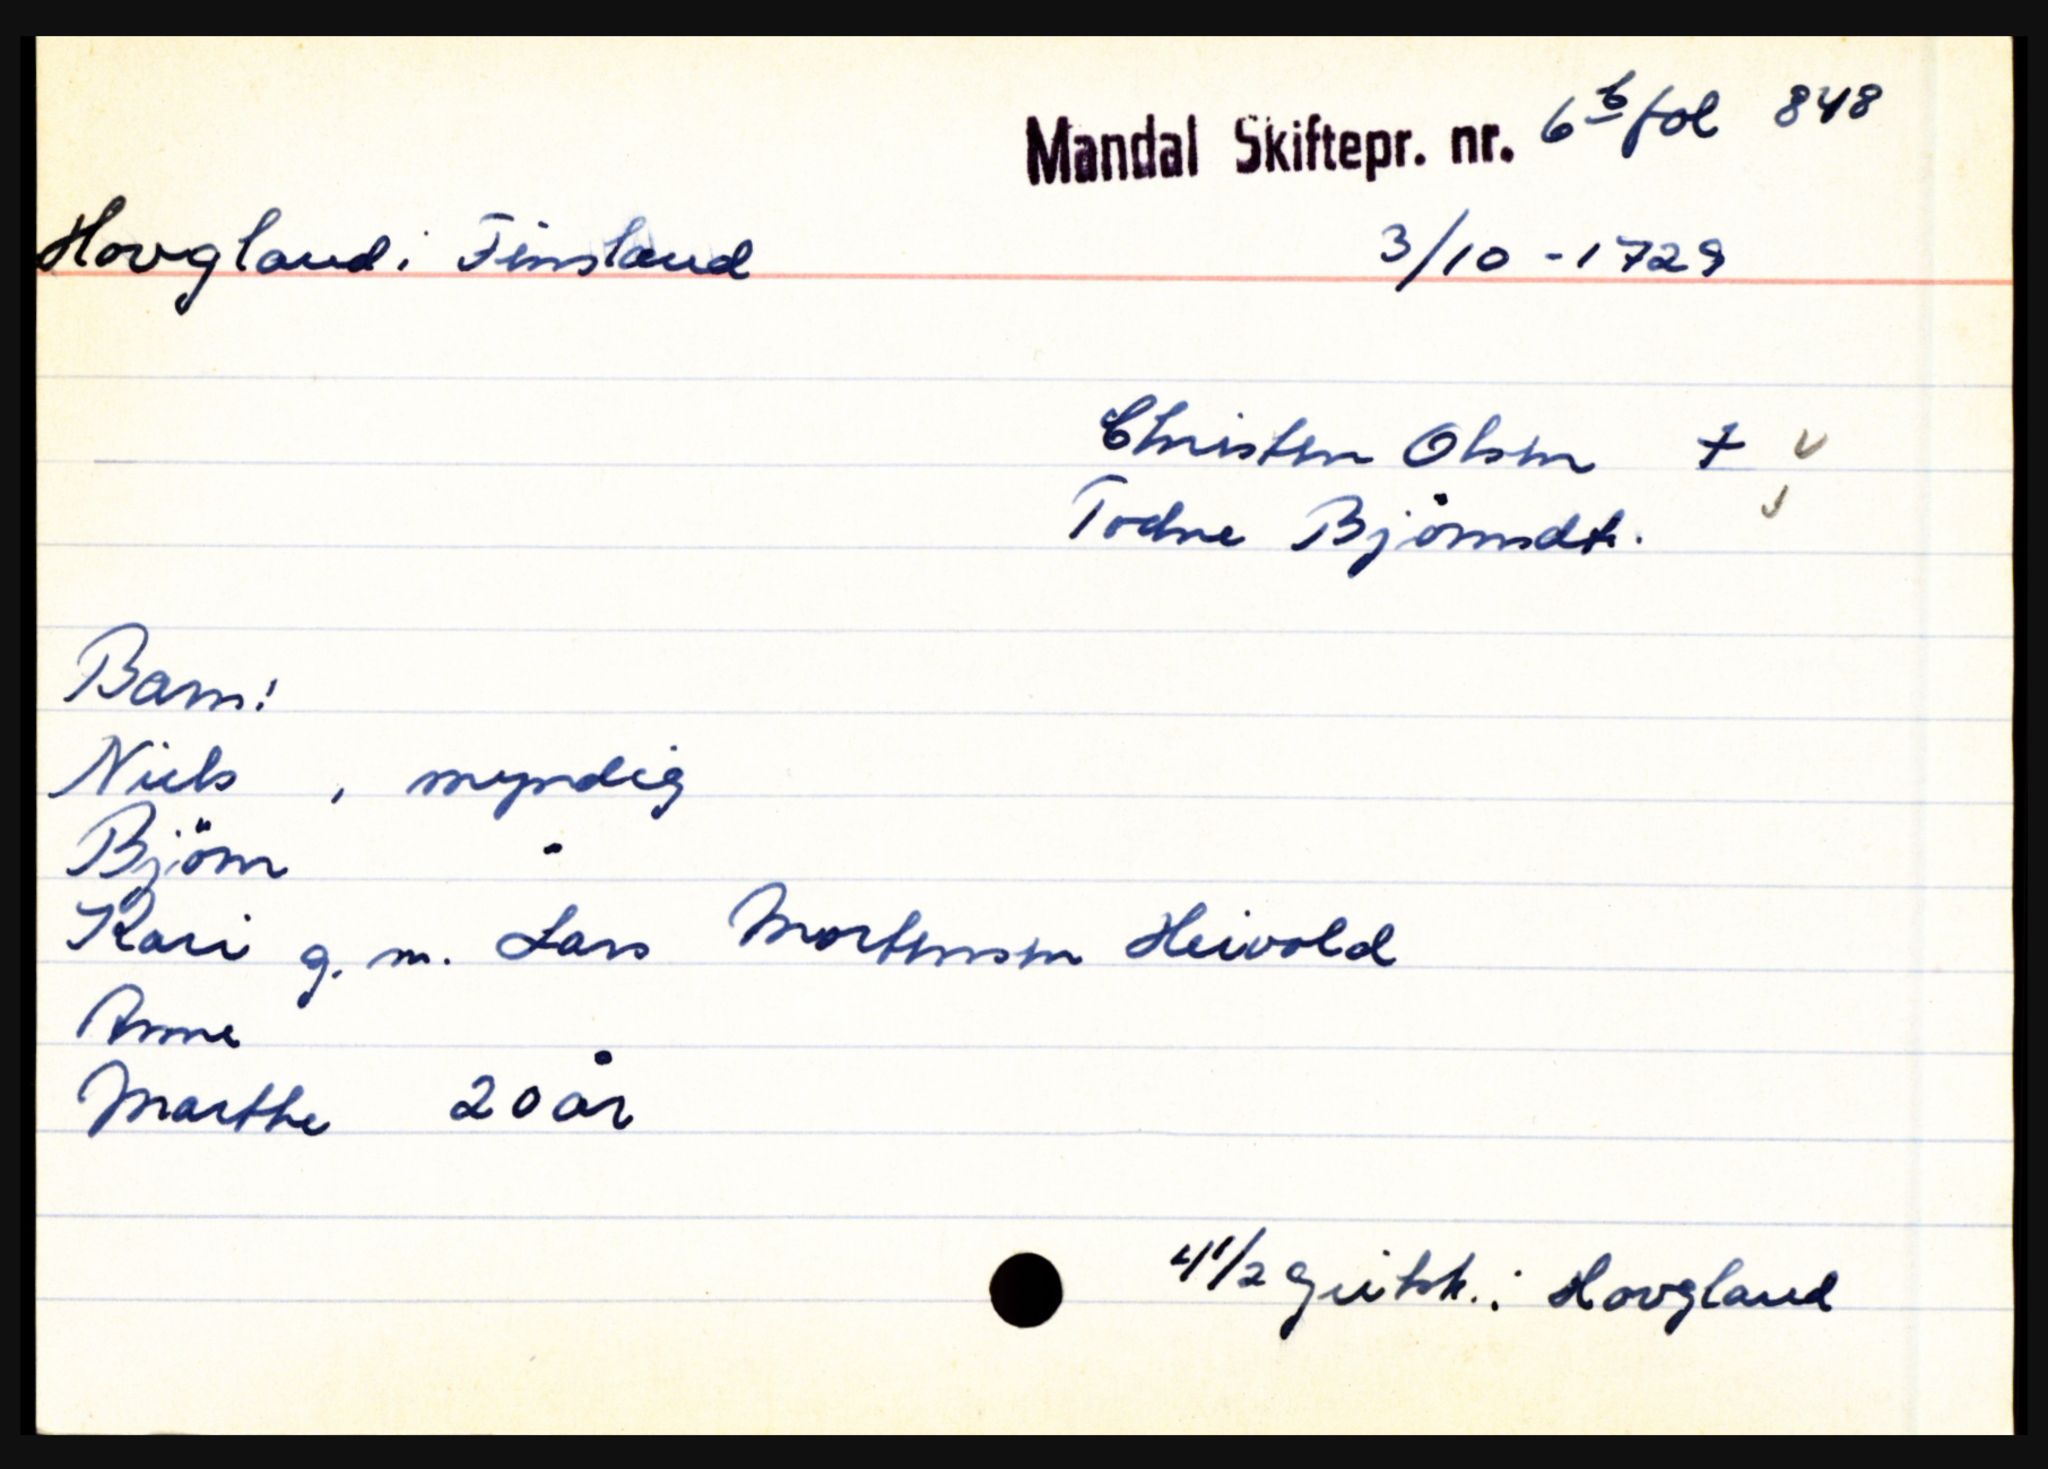 Mandal Skiftepr. nr. 6b fol 848
Hovgland i Finsland 3/10 - 1729
Christen Olsen †
Todne Björnsdt.
Barn:
Niels , myndig
Björn
Kari g. m. Lars Mortensen Heivold
Anne
Marthe 20 år
4 1/2 i Hovgland